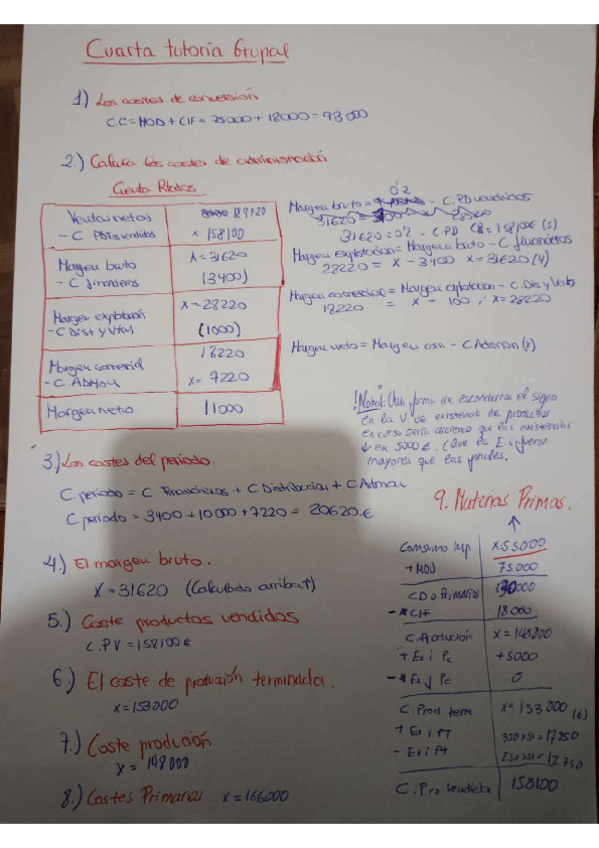 Cuarta tutoria Grupal
1) Los costes de conversión
C.C = MOD + CIF = 75000 + 18000 = 93000
2.) Calcula los costes de administración
Cuenta Rtados
Ventas netas 189720
- C PDTos vendidos x 158100
Margen bruto x = 31620
- C financieros (3400)
Margen explotación x = 28220
- C Dist y Vtas (1000)
Margen comercial 18220
- C ADMON x = 7220
Margen neto 11000
0'2
Margen bruto = - C.PD vendidos
31620 = 0'2 - C.PD = 158100€ (5)
Margen explotación = Margen bruto - C financieros
28220 = x - 3400 x = 31620 (4)
Margen comercial = Margen explotación - C Dis y Venta
18220 = x - 100 ; x = 28220
Margen neto = Margen com. - C Admon (2)
¡Nota!: Otra forma de escondernos el signo
en la V. de existencia de productos
en curso sería diciendo que las existencias
↓ en 5000 €. (Que la E. i fueron
mayores que las finales.
3.) Los costes del período.
C. periodo = C. Financieros + C Distribucion + C Admon
C periodo = 3400 + 10000 + 7220 = 20620.€
4.) El margen bruto.
x = 31620 (Calculado arriba ↑)
5.) Coste productos vendidos
C.PV = 158100 €
6.) El coste de producción terminada.
x = 153000
7.) Coste produción
x = 148000
8.) Costes Primarios x = 166000
9. Materias Primas.
↑
Consumo mp x 55000
+ MOD 75000
CD o Primarios 130000
- CIF 18000
C. Producción x = 148000
+ Ex i Pc +5000
- Ex f Pc 0
C. Prod term x = 153000 (6)
+ Ex i PT 350x51 = 17850
- Ex i Pt 250x51 = 12750
C. Pro Vendida 158100